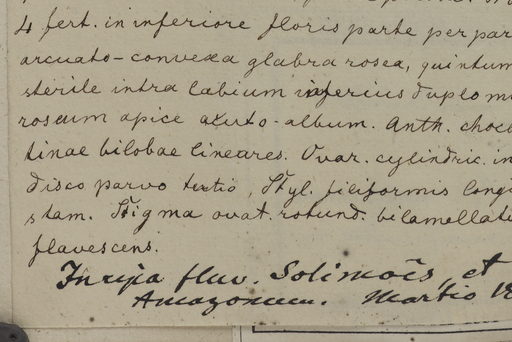 4 fert. in inferiore floris parte per par
arcuato-convexa glabra rosea, quintum
sterile intra labium inferius duplo m
roseum apice acuto-album. Anth. choco
tinae bilobae lineares. Ovar. cylindric. in
disco parvo Styl. filiformis longi
stam. Stigma ovat. rotund. bilamellat
flavescens.
In ripa fluv. Solimoẽs, et
Amazonum. Martio 18